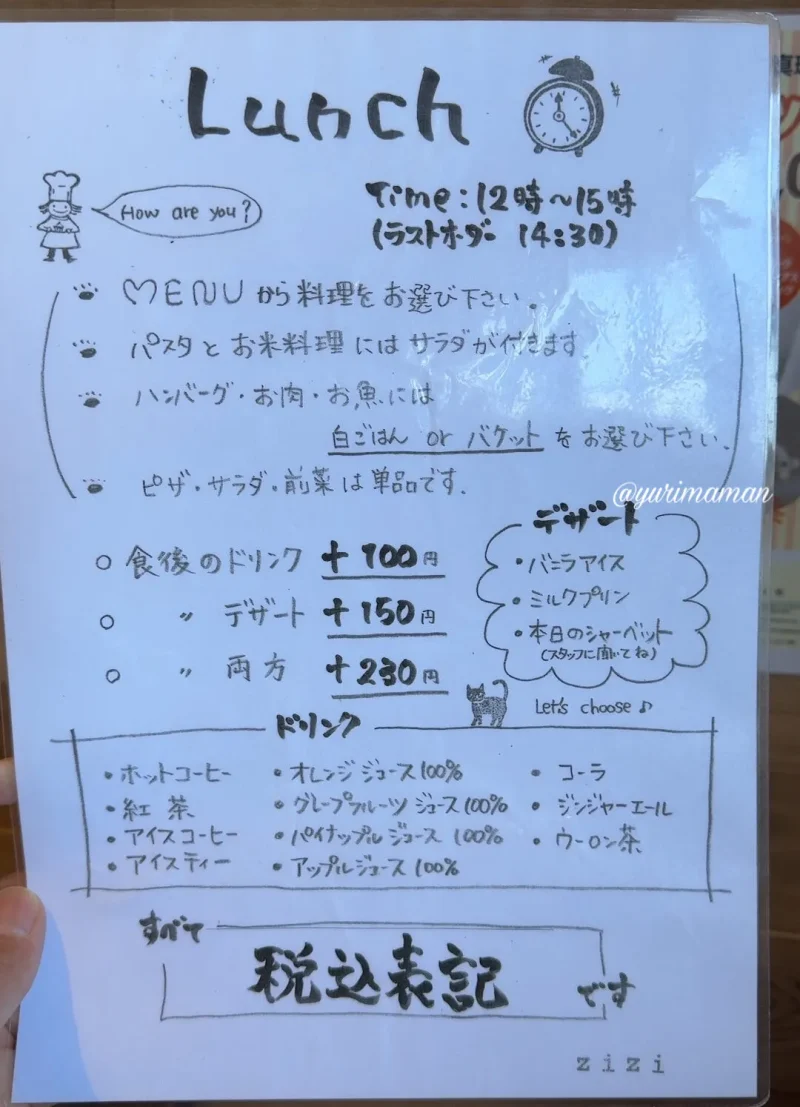 Lunch
How are you?
Time:12時〜15時
(ラストオーダー 14:30)
MENUから料理をお選び下さい。
パスタとお米料理にはサラダが付きます
ハンバーグ・お肉・お魚には
白ごはん or バケットをお選び下さい。
ピザ・サラダ・前菜は単品です.
@yurimaman
○ 食後のドリンク +100円
○ 〃 デザート +150円
○ 〃 両方 +230円
デザート
・バニラアイス
・ミルクプリン
・本日のシャーベット
(スタッフに聞いてね)
Let's choose♪
ドリンク
・ホットコーヒー
・紅茶
・アイスコーヒー
・アイスティー
・オレンジジュース100%
・グレープフルーツジュース100%
・パイナップルジュース 100%
・アップルジュース100%
・コーラ
・ジンジャーエール
・ウーロン茶
すべて
税込表記
です
zizi